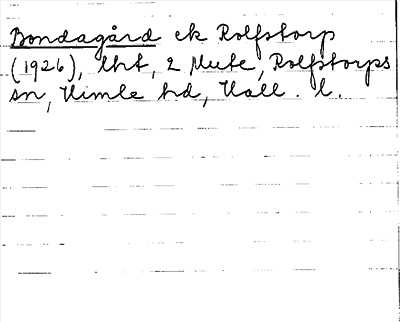 Bondagård ek Rolfstorp
(1926), lht, 2 Mute, Rolfstorps
sn, Himle hd, Hall. l.